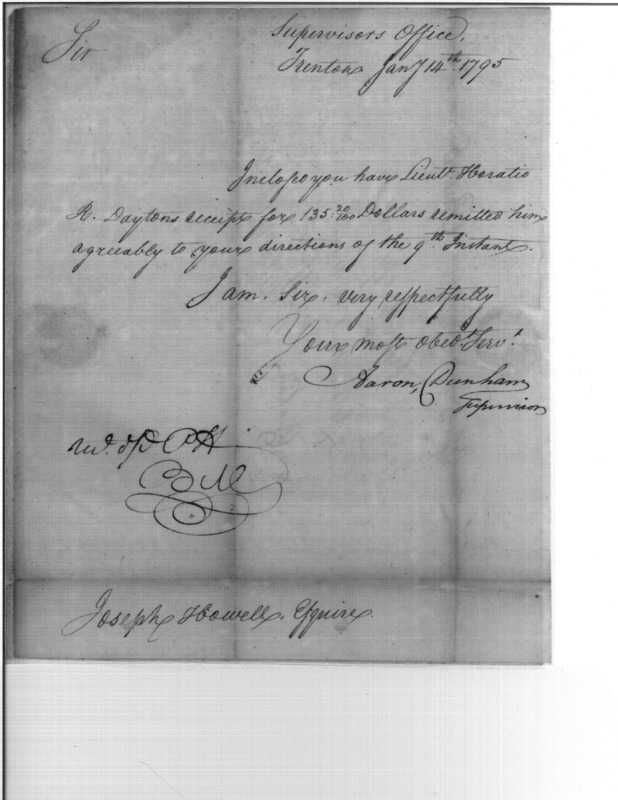 Supervisors Office,
Sir
Trenton Jany 14th. 1795
Inclose you have Lieut. Horatio
R. Daytons receipt for 135 20/100 Dollars remitted him
agreeably to your directions of the 9th Instant.
I am, Sir, very respectfully
Your most obedt. Servt.
Aaron, Dunham
Supervisor
Joseph Howell, Esquire